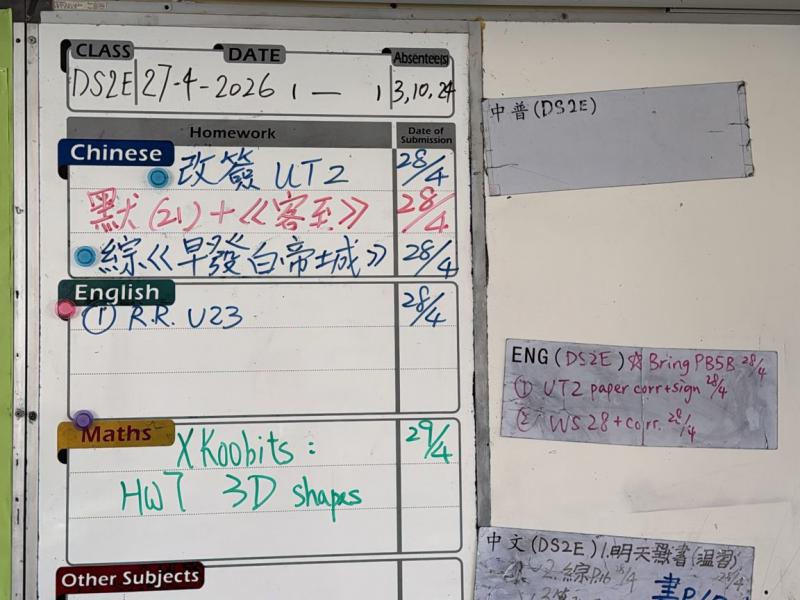 CLASS DATE Absentee(s)
DS2E 27-4-2026 1 — 1 3,10,24
Homework Date of Submission
Chinese 改簽 UT2 28/4
默(21)+《客至》 28/4
綜《早發白帝城》 28/4
English
① R.R. U23 28/4
Maths
XKoobits: 29/4
HW7 3D shapes
Other Subjects
中普(DS2E)
ENG (DS2E) ☆ Bring PB5B 28/4
① UT2 paper corr+sign 28/4
② WS 28+corr. 28/4
中文(DS2E) 1.明天默書(溫習)
2.綜P.16